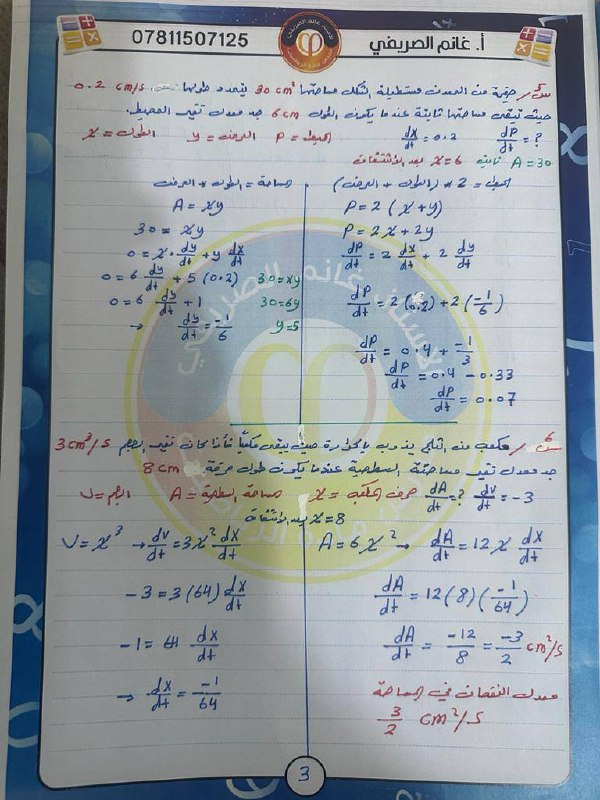 أ. غانم الصريفي
07811507125
س5/ صفيحة من المعدن مستطيلة الشكل مساحتها 30 cm² يتمدد طولها 0.2 cm/s
حيث تبقى مساحتها ثابتة عندما يكون الطول 6cm جد معدل تغير المحيط.
الطول = x العرض = y المحيط = P dx/dt = 0.2 dP/dt = ?
A = 30 ثابت x = 6 بعد الاشتقاق
المحيط = 2 * (الطول + العرض)
P = 2 (x + y)
P = 2x + 2y
dP/dt = 2 dx/dt + 2 dy/dt
dP/dt = 2(0.2) + 2(-1/6)
dP/dt = 0.4 + -1/3
dP/dt = 0.4 - 0.33
dP/dt = 0.07
المساحة = الطول * العرض
A = xy
30 = xy
0 = x · dy/dt + y dx/dt
0 = 6 dy/dt + 5 (0.2) 30 = xy
0 = 6 dy/dt + 1 30 = 6y
→ dy/dt = -1/6 y = 5
س6/ مكعب من الثلج يذوب بالحرارة حيث يبقى مكعباً فإذا كان تغير الحجم 3 cm³/s
جد معدل تغير مساحته السطحية عندما يكون طول حرفه 8 cm
الحجم = V المساحة السطحية = A حرف المكعب = x dA/dt = ? dv/dt = -3
x = 8 بعد الاشتقاق
V = x³ → dv/dt = 3x² dx/dt
-3 = 3(64) dx/dt
-1 = 64 dx/dt
→ dx/dt = -1/64
A = 6x² → dA/dt = 12x dx/dt
dA/dt = 12(8)(-1/64)
dA/dt = -12/8 = -3/2 cm²/s
معدل النقصان في المساحة
3/2 cm²/s
3